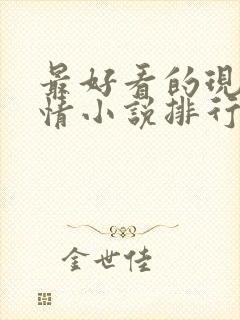 最好看的現
情小說排行
金世佳